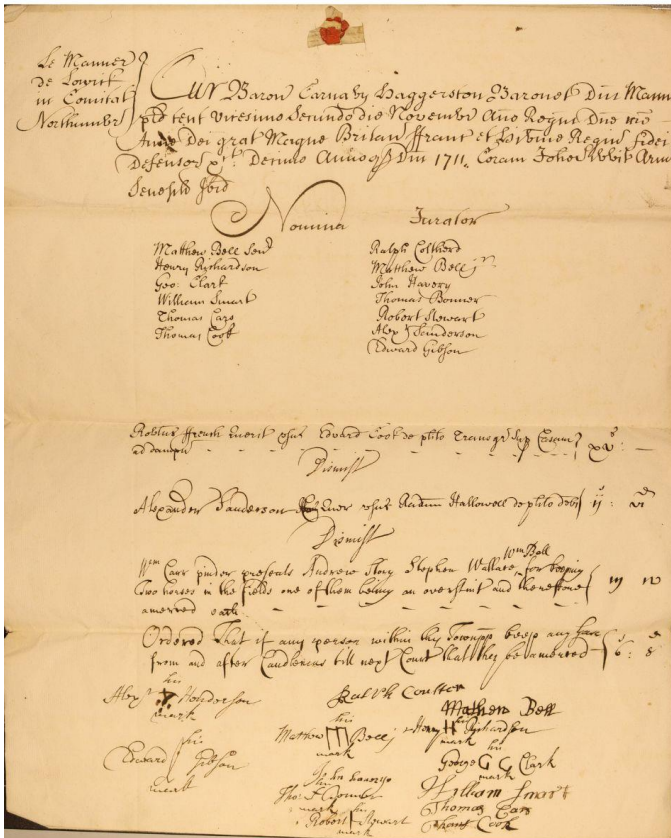 Le Manner
de Lowick
in Comitat
Northumbr
Cur Baron Carnaby Haggerston Baronet Dni Mann
pd tent vicesimo Secundo die November Ano Regni Dne nre
Anne Dei grat Magne Britan ffranc et Hibnie Regin fidei
Defensor &c: Decimo Annoq Dm 1711, Coram Arm
Senesch Ibid
Nomina Jurator
Matthew Bell Senr
Henry Richardson
Geo: Clark
William Smart
Thomas Cars
Thomas Cook
Ralph Coltherd
Matthew Bell jr
John Havery
Thomas Bonner
Robert Stewart
Alexr Sanderson
Edward Gibson
Robtus ffrench Quer vsus Edward Cook de plito Transgr Sup Casum xxs : —
ad dampn
Dismist
Alexander Sanderson Quer vsus Hallowell de plito debi ijs : vid
Dismist
Wm Carr pinder presents Andrew Story Stephen Wallace, Wm Bell for keeping
two horses in the fields one of them being an overstint and therefore iij iv
amerced each
Ordered That if any person within this Townpp keep any
from and after Candlemas till next Court that they be amerced s6 : d8
Alexr his Henderson
mark
Edward his Gibson
mark
Ralph Coulter
Mathew his M Bell jr
mark
John haverye
Tho: his Bonner
mark
Robert his Stewart
mark
Mathew Bell
Henry H his Richardson
mark
George G C his Clark
mark
William Smart
Thomas Cars
Thomas Cook